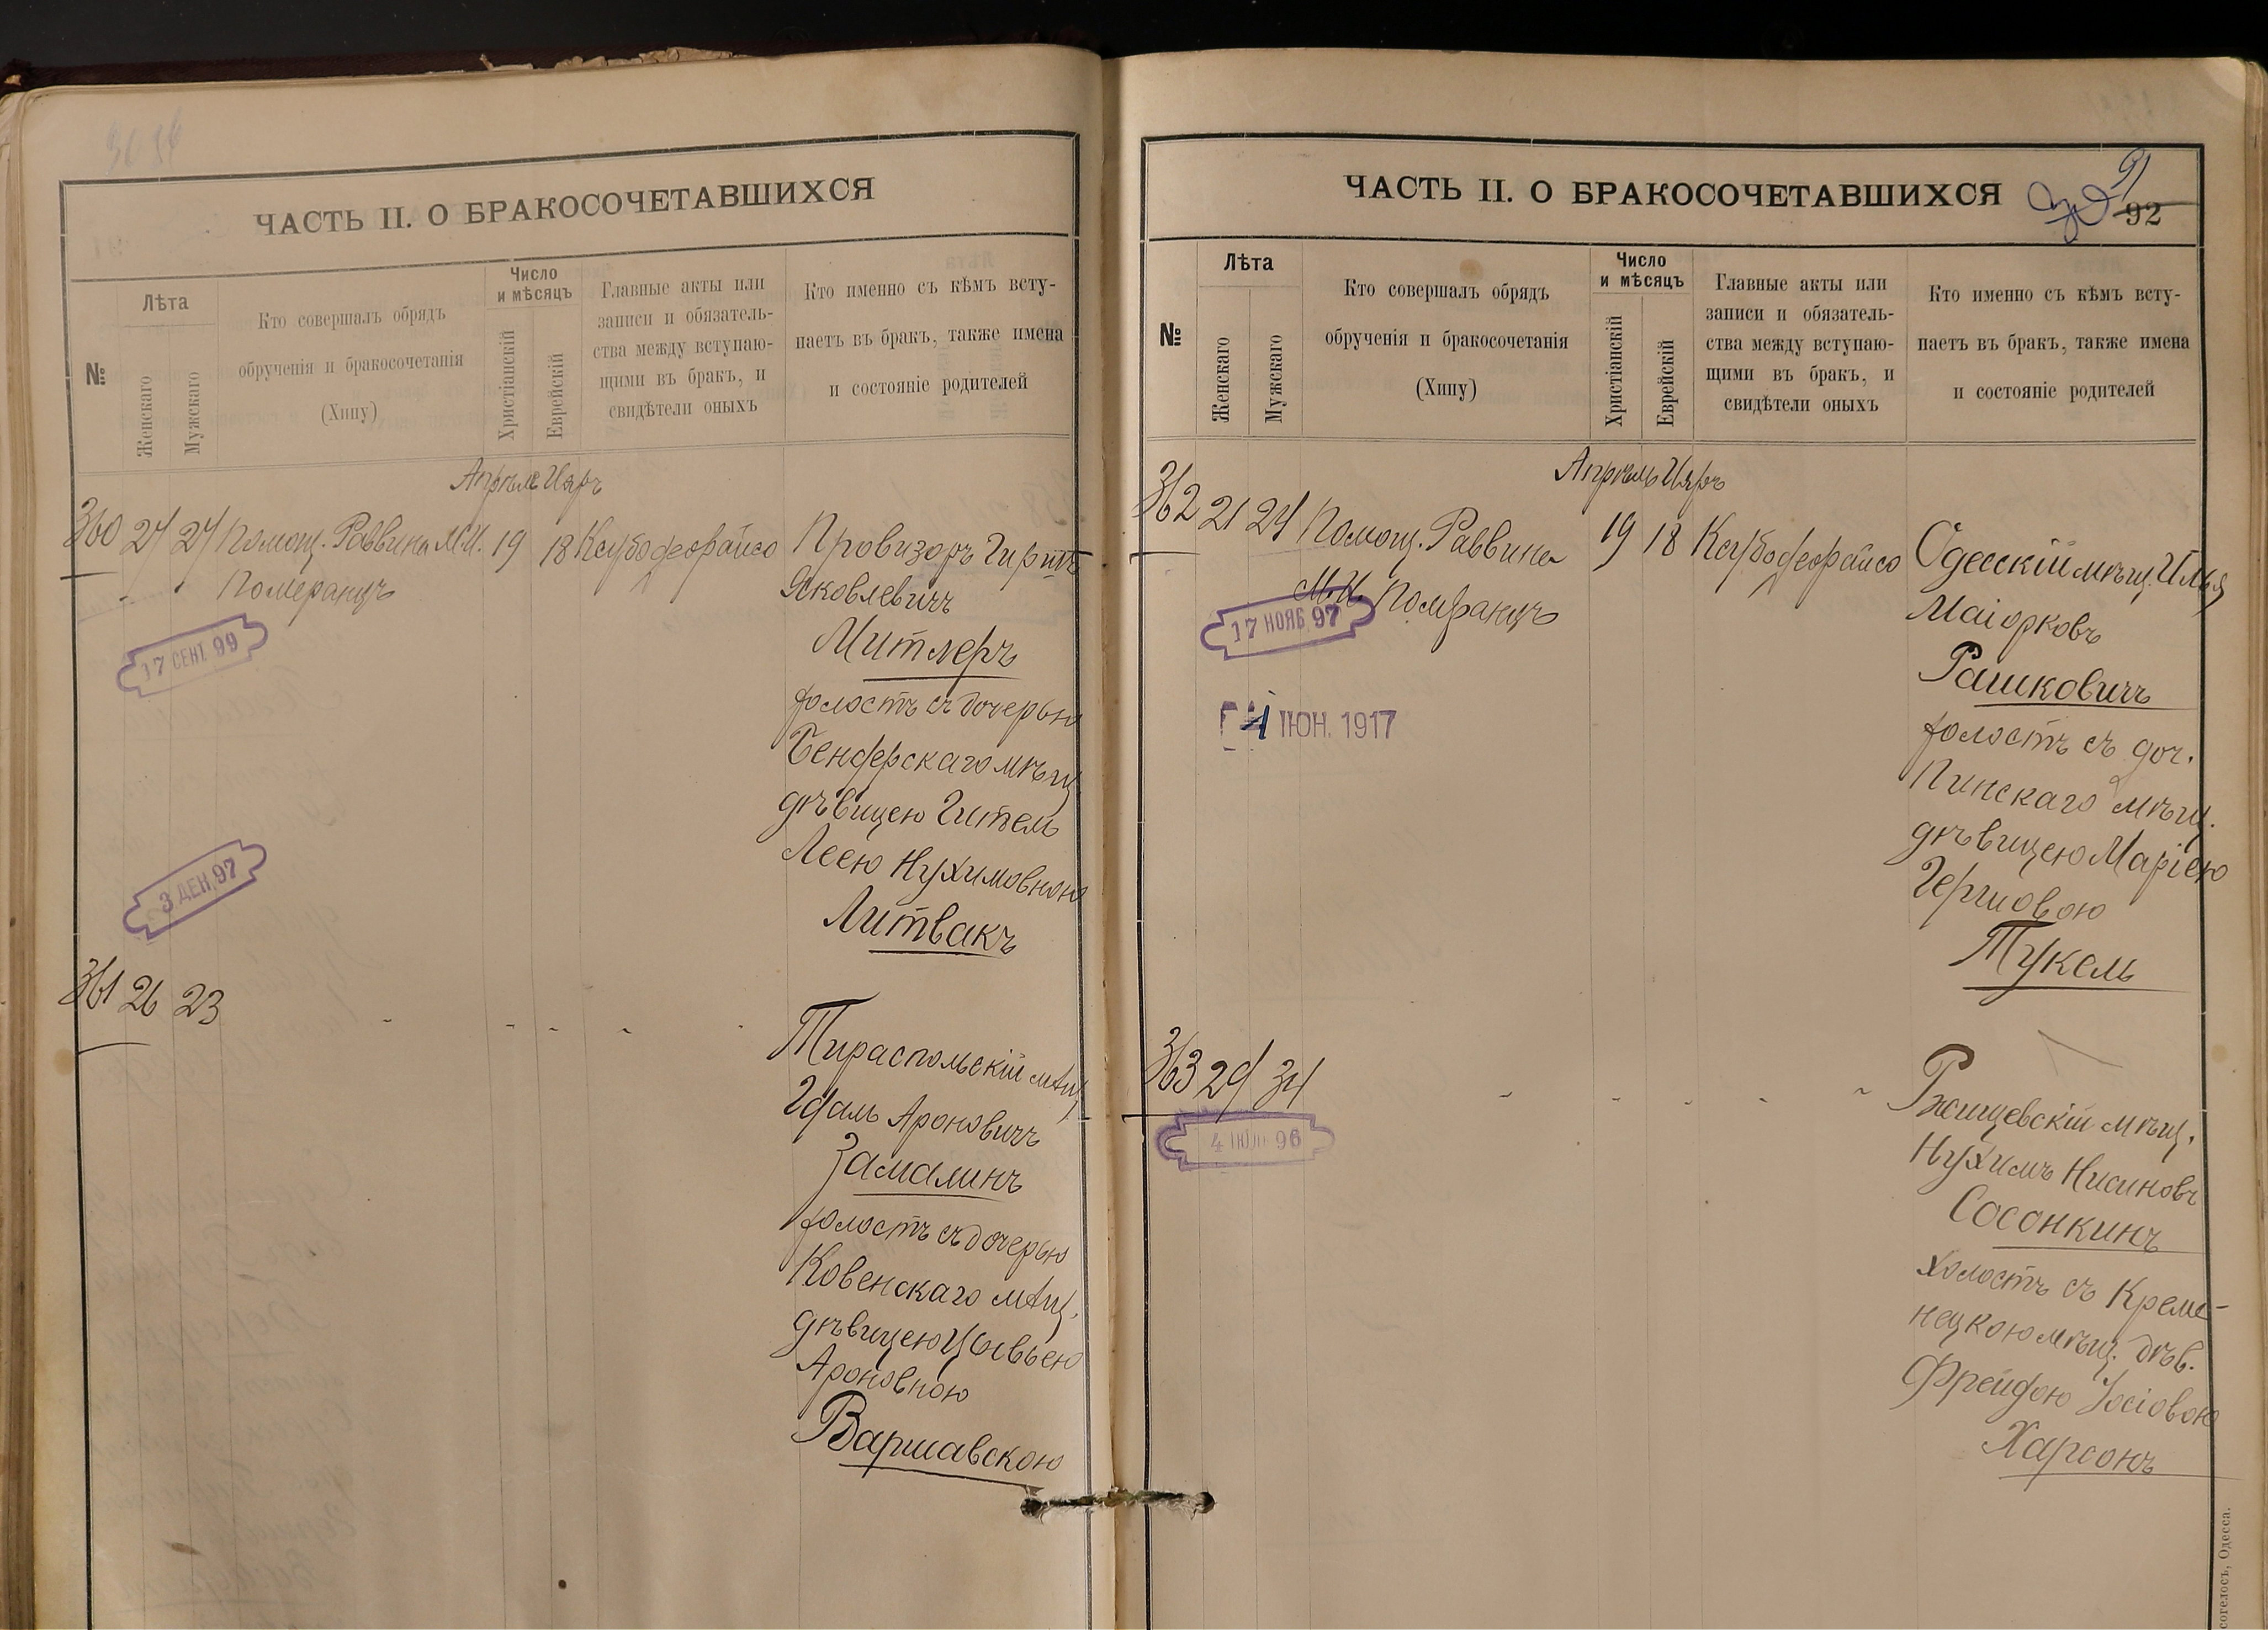 ЧАСТЬ II. О БРАКОСОЧЕТАВШИХСЯ
№
Лѣта
Женскаго
Мужскаго
Кто совершалъ обрядъ
обрученія и бракосочетанія
(Хипу)
Число
и мѣсяцъ
Христіанскій
Еврейскій
Главные акты или
записи и обязатель-
ства между вступаю-
щими въ бракъ, и
свидѣтели оныхъ
Кто именно съ кѣмъ всту-
паетъ въ бракъ, также имена
и состояніе родителей
Апрѣль Ияръ
360 24 24 Помощ. Раввина М.И. 19 18 Ксубо
Померанцъ
Провизоръ Гиршъ
Яковлевичъ
Митлеръ
холостъ съ дочерью
Бендерскаго мѣщ
дѣвицею Гитель
Леею Нухимовною
Литвакъ
17 СЕНТ. 99
3 ДЕК. 97
361 26 23
Тираспольскій мѣщ
Идаль Ароновичъ
Замалинъ
холостъ съ дочерью
Ковенскаго мѣщ.
дѣвицею Цывьею
Ароновною
Варшавскою
ЧАСТЬ II. О БРАКОСОЧЕТАВШИХСЯ
91
92
№
Лѣта
Женскаго
Мужскаго
Кто совершалъ обрядъ
обрученія и бракосочетанія
(Хипу)
Число
и мѣсяцъ
Христіанскій
Еврейскій
Главные акты или
записи и обязатель-
ства между вступаю-
щими въ бракъ, и
свидѣтели оныхъ
Кто именно съ кѣмъ всту-
паетъ въ бракъ, также имена
и состояніе родителей
Апрѣль Ияръ
362 21 24 Помощ. Раввина 19 18 Ксубо
М.И. Померанцъ
17 НОЯБ. 97
4 ІЮН. 1917
Одесскій мѣщ. Илья
Маіорковъ
Рашковичъ
холостъ съ доч.
Пинскаго мѣщ.
дѣвицею Маріею
Гершовою
Тукель
363 29 34
4 ІЮЛ 96
Ржищевскій мѣщ.
Нухимъ Нисиновъ
Сосонкинъ
холостъ съ Креме-
нецкою мѣщ. дѣв.
Фрейдою Іосіовою
Харсонъ
Одесса.